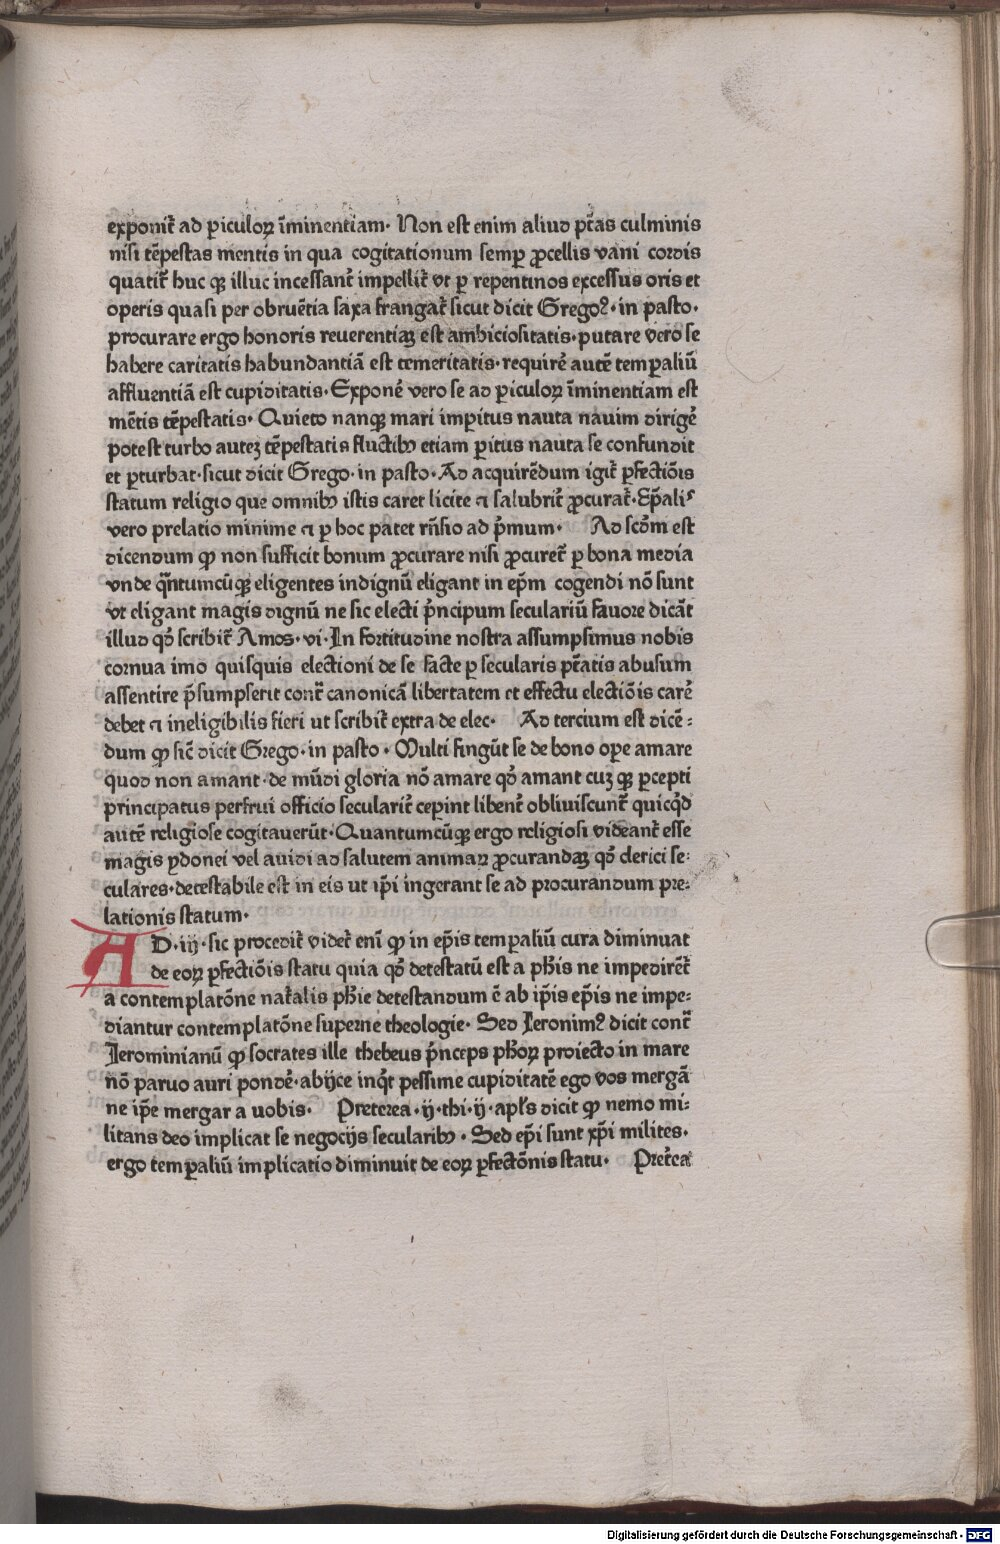 exponit᷑ ad ꝑiculoꝝ īminentiam· Non est enim aliud ptã̄s culminis
nisi tēpestas mentis in qua cogitationum semꝑ ꝓcellis vani cordis
quatit᷑ huc qꝫ illuc incessant᷑ impellit᷑ vt ꝑ repentinos excessus oris et
operis quasi per obruētia saxa frangat᷑ sicut dicit Gregoꝰ·in pasto·
procurare ergo honoris reuerentiaꝫ est ambiciositatis·putare vero se
habere caritatis habundantiā est temeritatis·requirē autē temꝑaliū
affluentiā est cupiditatis·Exponē vero se ad ꝑiculoꝝ īminentiam est
mētis tēpestatis· Quieto nanqꝫ mari imꝑitus nauta nauim dirigē
potest turbo auteꝫ tēpestatis fluctibꝰ etiam ꝑitus nauta se confundit
et ꝑturbat·sicut dicit Grego·in pasto·Ad acquirēdum igit᷑ ꝑfectiōis
statum religio que omnibꝰ istis caret licite ⁊ salubrit᷑ ꝓcurat᷑·Ep̄aliˢ
vero prelatio minime ⁊ ꝑ hoc patet rn̄sio ad pͥmum· Ad scd̄m est
dicendum ꝙ non sufficit bonum ꝓcurare nisi ꝓcuret᷑ ꝑ bona media
vnde qͣntumcūqꝫ eligentes indignū eligant in ep̄m cogendi nō sunt
vt eligant magis dignū ne sic electi pͥncipum seculariū fauore dicāt
illud qd̄ scribit᷑ Amos·vi·In fortitudine nostra assumpsimus nobis
cornua imo quisquis electioni de se facte ꝑ secularis ptãtis abusum
assentire p̄sumpserit cont᷑ canonicā libertatem et effectu electiōis carē
debet ⁊ ineligibilis fieri ut scribit᷑ extra de elec· Ad tercium est dicē⸗
dum ꝙ sic᷑ dicit Grego·in pasto·Multi fingūt se de bono oꝑe amare
quod non amant·de mūdi gloria nō amare qd̄ amant cuꝫ qꝫ ꝑcepti
principatus perfrui officio secularit᷑ ceꝑint libent᷑ obliuiscunt᷑ quicqͥd
autē religiose cogitauerūt·Quantumcūqꝫ ergo religiosi videant᷑ esse
magis ydonei vel auidi ad salutem animaꝝ ꝓcurandaꝫ qd̄ clerici se⸗
culares·detestabile est in eis ut ip̄i ingerant se ad procurandum pre⸗
lationis statum·
AD·iij·sic procedit᷑ videt᷑ enī ꝙ in ep̄is temꝑaliū cura diminuat
de eoꝝ ꝑfectiōis statu quia qd̄ detestatū est a ph̄is ne impedirēt᷑
a contemplatōne nat᷑alis ph̄ie detestandum ē ab ip̄is ep̄is ne impe⸗
diantur contemplatōne superne theologie· Sed Ieronimꝰ dicit cont᷑
Ierominianū ꝙ socrates ille thebeus pͥnceps ph̄oꝝ proiecto in mare
nō paruo auri pondē·abijce inqͥt pessime cupiditatē ego vos mergā
ne ip̄e mergar a uobis· Preterea·ij·thi·ij·apl̄s dicit ꝙ nemo mi⸗
litans deo implicat se negocijs secularibꝰ·Sed ep̄i sunt xp̄i milites·
ergo temꝑaliū implicatio diminuit de eoꝝ ꝑfectōnis statu· Pret᷑ea
Digitalisierung gefördert durch die Deutsche Forschungsgemeinschaft · DFG